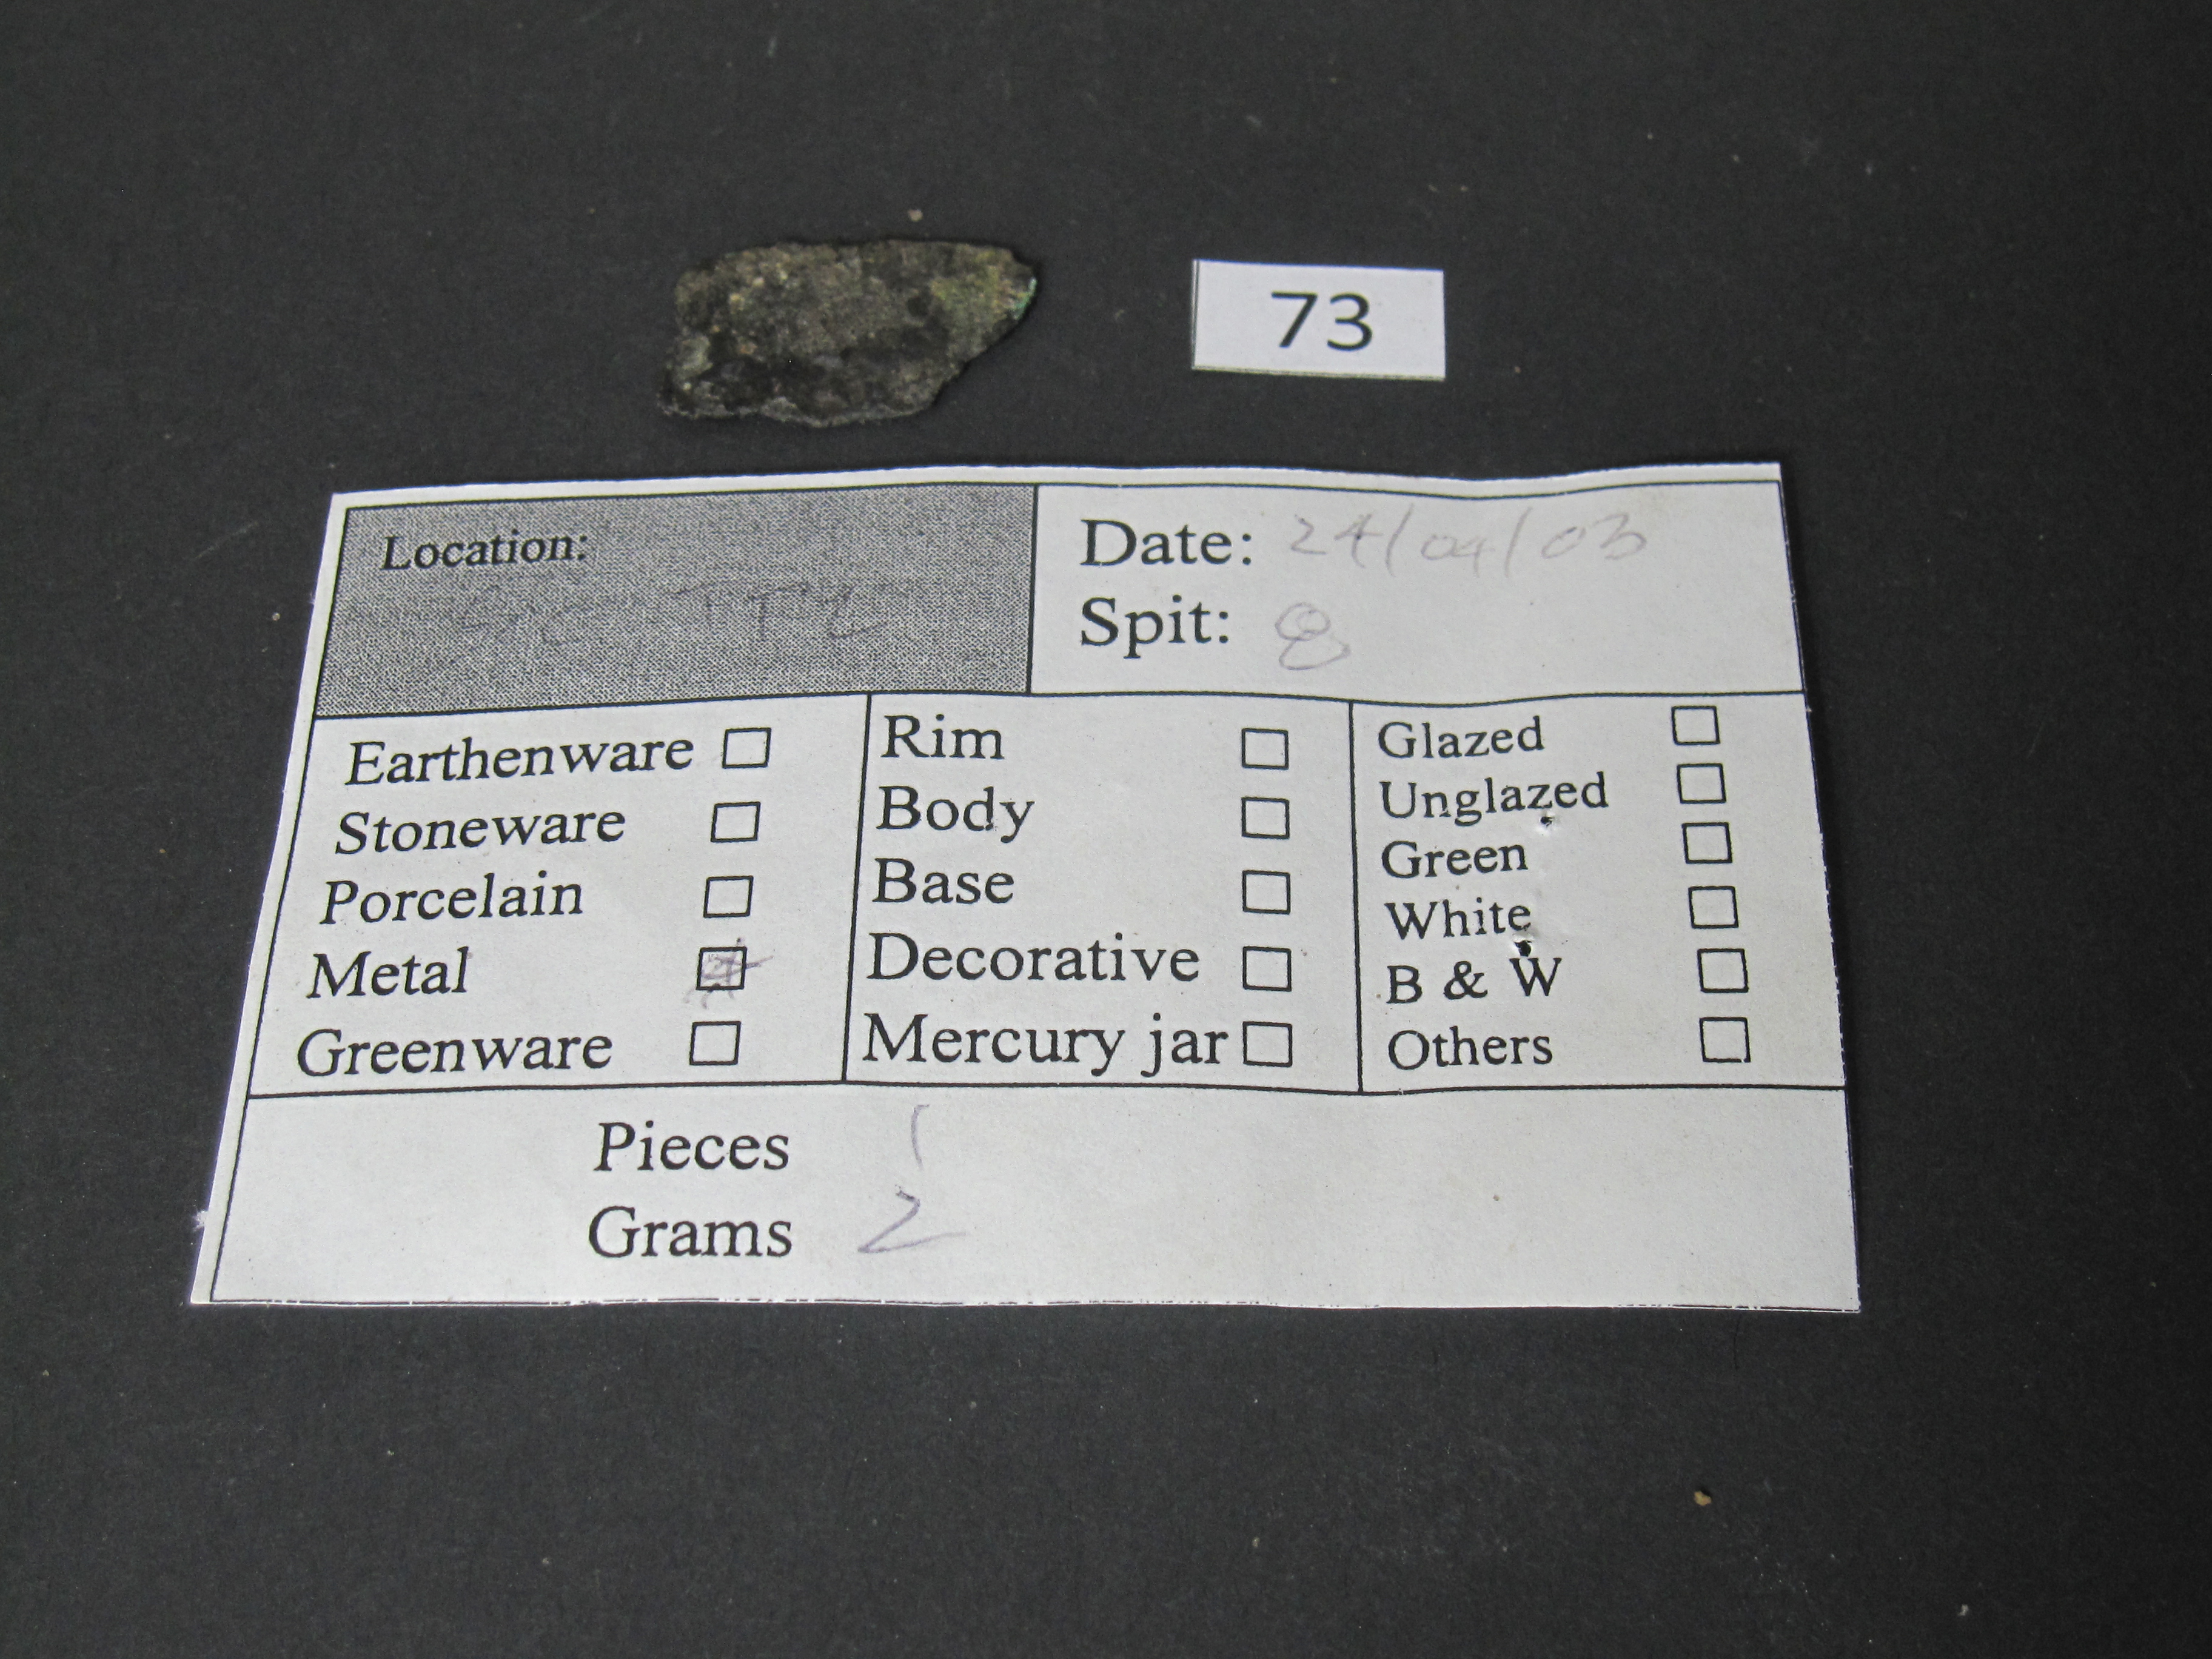 73
Location:
Date: 24/04/03
Spit: 8
Earthenware
Stoneware
Porcelain
Metal
Greenware
Rim
Body
Base
Decorative
Mercury jar
Glazed
Unglazed
Green
White
B & W
Others
Pieces 1
Grams 2